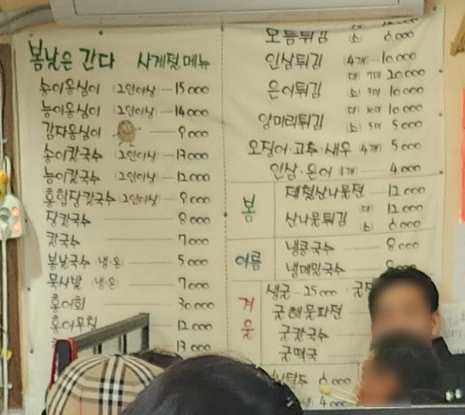 봄날은 간다 사계절 메뉴
송이옹심이 (2인이상) 15000
능이옹심이 (2인이상) 14000
감자옹심이 9000
송이칼국수 (2인이상) 13000
능이칼국수 (2인이상) 12000
홍합장칼국수 2인이상 9000
장칼국수 8000
칼국수 7000
봄날국수 냉·온 5000
묵사발 냉·온 7000
홍어회 30000
홍어무침 12000
13000
모듬튀김 소 6000
인삼튀김 4개 10000
은어튀김 대 7마 20000
소 10000
양미리튀김 대 10마 10000
소 5마 5000
오징어·고추·새우 4개 5000
인삼·은어 1개 4000
봄
제철산나물전 12000
산나물튀김 대 12000
소 6000
여름
냉콩국수 8000
냉메밀국수 8000
겨울
생굴 25000
굴해물파전
굴칼국수
굴떡국
6000
4000